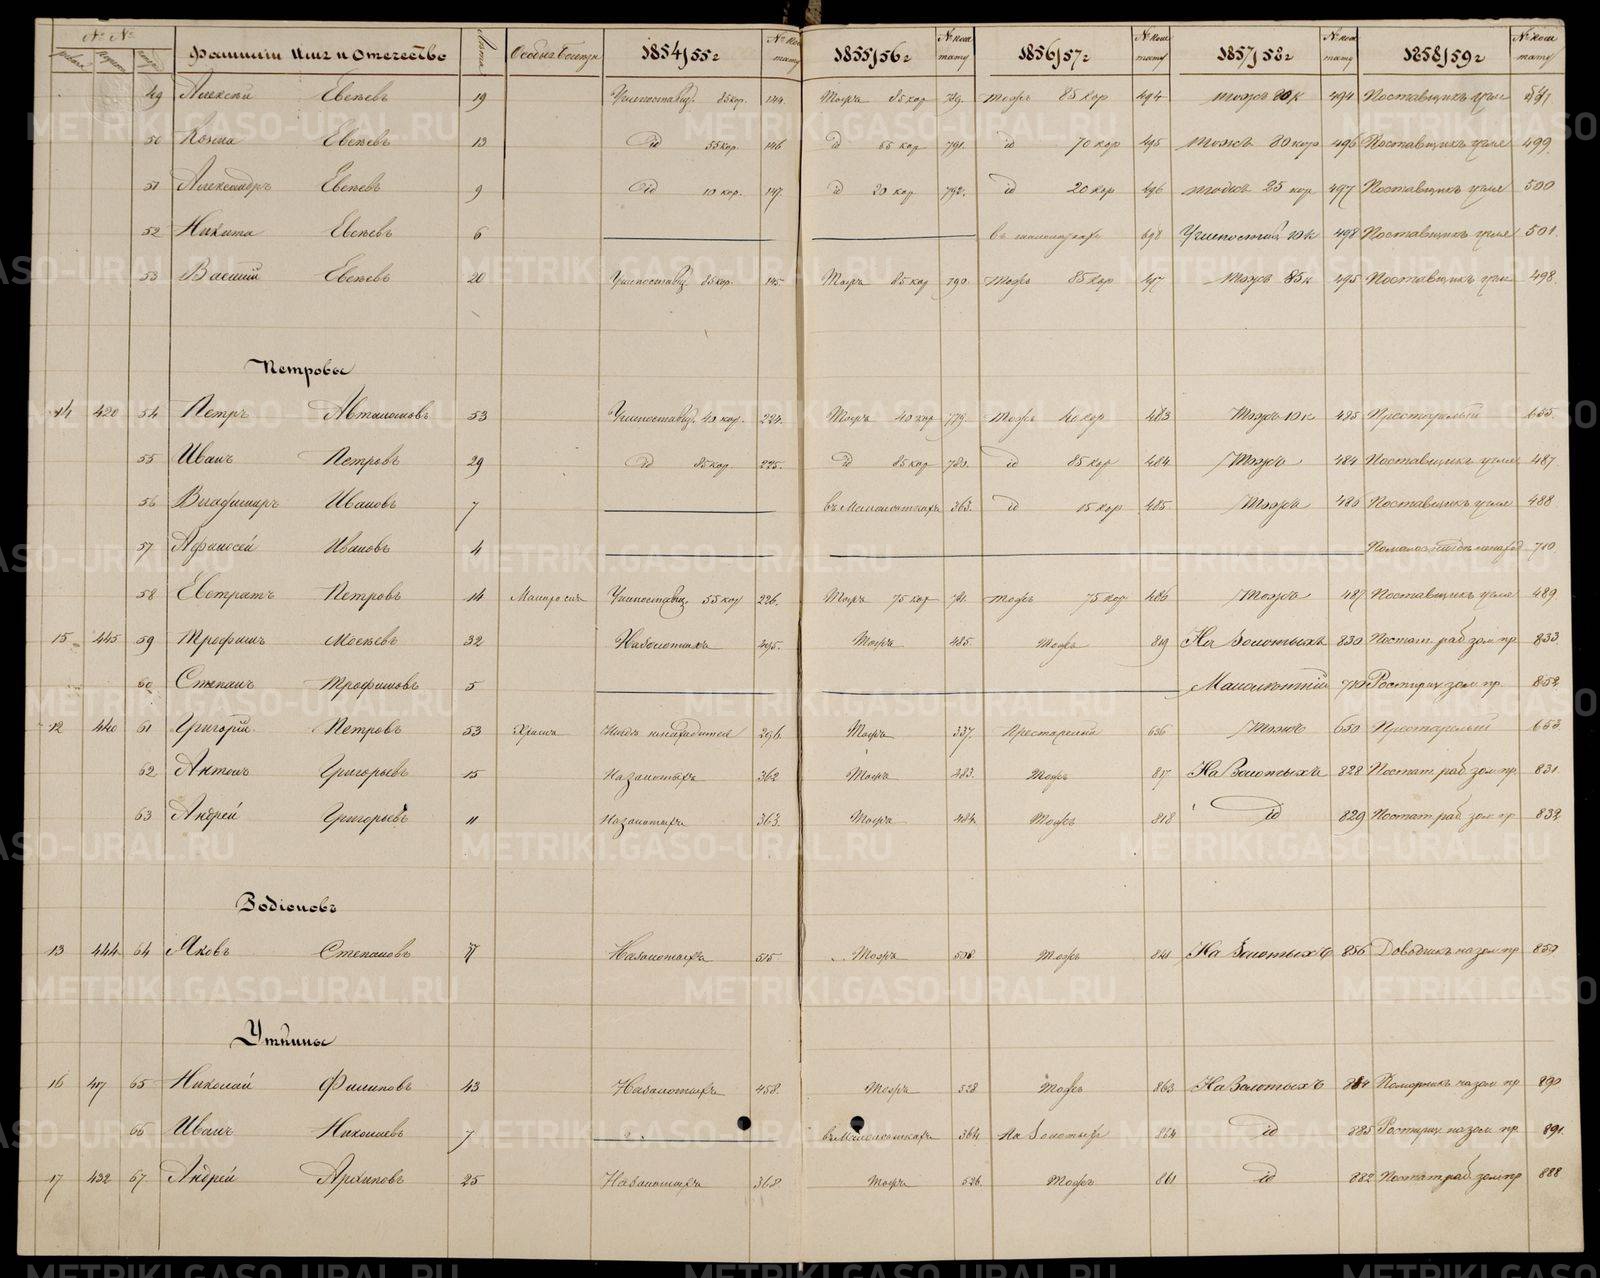 № № Фамилии Имя и Отечество Лѣта 1854/55 г № по комату 1855/56 г № ком мату 1856/57 г № ком мату 1857/58 г № ком мату 1858/59 г № ком мату
49 Алексѣй Евсѣевъ 19 Углепоставщ. 85 кор. 144. Тожъ 85 кор 789. тожъ 85 кор 494 тожъ 80 к 494 Поставщикъ угля
50 Козма Евсѣевъ 13 id 55 кор. 146 id 55 кор 791. id 70 кор 495 тожъ 80 кор 496 Поставщикъ угля 499.
51 Александръ Евсѣевъ 9 id 10 кор. 147. id 20 кор 792. id 20 кор 496 тожъ 25 кор. 497 Поставщикъ угля 500
52 Никита Евсѣевъ 6 в малолѣткахъ 698 Углепоставщ. 10 к 498 Поставщикъ угля 501.
53 Василій Евсѣевъ 20 Углепоставщ 85 кор. 145. Тожъ 85 кор 790. Тожъ 85 кор 497 Тожъ 85 к 495 Поставщикъ угля 498.
Петровы
14 420 54 Петръ Автономовъ 53 Углепоставщ. 40 кор. 224. Тожъ 40 кор 779. Тожъ 40 кор 483 Тожъ 10 к 485 Престарѣлый 655.
55 Иванъ Петровъ 29 id 85 кор 225. id 85 кор 780. id 85 кор 484 Тожъ 484 Поставщикъ угля 487.
56 Владимиръ Ивановъ 7 въ Малолѣткахъ 363. id 15 кор 485. Тожъ 486 Поставщикъ угля 488
57 Афанасей Ивановъ 4 710.
58 Евстратъ Петровъ 14 Углепоставщ. 55 кор 226. Тожъ 75 кор 781. тожъ 75 кор 486 Тожъ 487 Поставщикъ угля 489.
15 445 59 Трофимъ Мосѣевъ 32 На золотыхъ 495. Тожъ 485. Тожъ 819 На Золотыхъ 830 Постат. раб зол пр 833.
60 Степанъ Трофимовъ 5 Малолѣтній 710 зол пр. 852.
12 440 61 Григорій Петровъ 53 Хромъ Нигдѣ ненаходится 296. Тожъ 337. Престарелый 656 Тожъ 650 Престарелый 653.
62 Антонъ Григорьевъ 15 На золотыхъ 362 Тожъ 483. Тожъ 817 На Золотыхъ 828 Постат раб зол пр 831.
63 Андрей Григорьевъ 11 На золотыхъ 363. Тожъ 484. Тожъ 818 id 829 Постат. раб зол пр 832.
Водіоновъ
13 444 64 Яковъ Степановъ На золотыхъ 515. Тожъ 508. Тожъ 841 На Золотыхъ 856 Доводчикъ на зол пр 859
Уткины
16 417 65 Николай Филиповъ 43 На золотыхъ 458. Тожъ 528 Тожъ 863 На Золотыхъ 884 на зол пр 890
66 Иванъ Николаевъ 7 въ Малолѣткахъ 364. На Золотыхъ 864 id 885 на зол пр. 891.
17 432 67 Андрей Архиповъ 25 На золотыхъ 368 Тожъ 526. Тожъ 861 id 882 Постат раб зол пр 888
METRIKI.GASO-URAL.RU